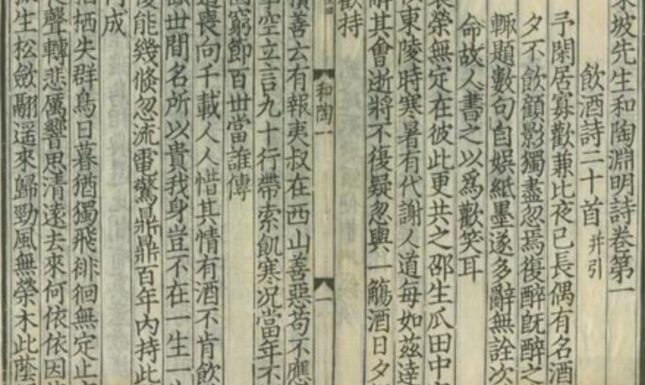 東坡先生和陶淵明詩卷第一
飲酒詩二十首 并引
予閑居寡歡兼比夜已長偶有名酒
夕不飲顧影獨盡忽焉復醉旣醉之
輒題數句自娱紙墨遂多辭無詮次
命故人書之以爲歡笑耳
衰榮無定在彼此更共之邵生瓜田中
似東陵時寒暑有代謝人道每如茲達
解其會逝將不復疑忽與一觴酒日夕
歡持
和陶一
一
積善云有報夷叔在西山善惡苟不應
事空立言九十行帶索飢寒况當年不
固窮節百世當誰傳
道喪向千載人人惜其情有酒不肯飲
世間名所以貴我身豈不在一生一
復能幾倏忽流電驚鼎鼎百年内持此
何成
栖栖失群鳥日暮猶獨飛徘徊無定止
聲轉悲厲響思清遠去來何依依因
生松斂翮遥來歸勁風無榮木此蔭